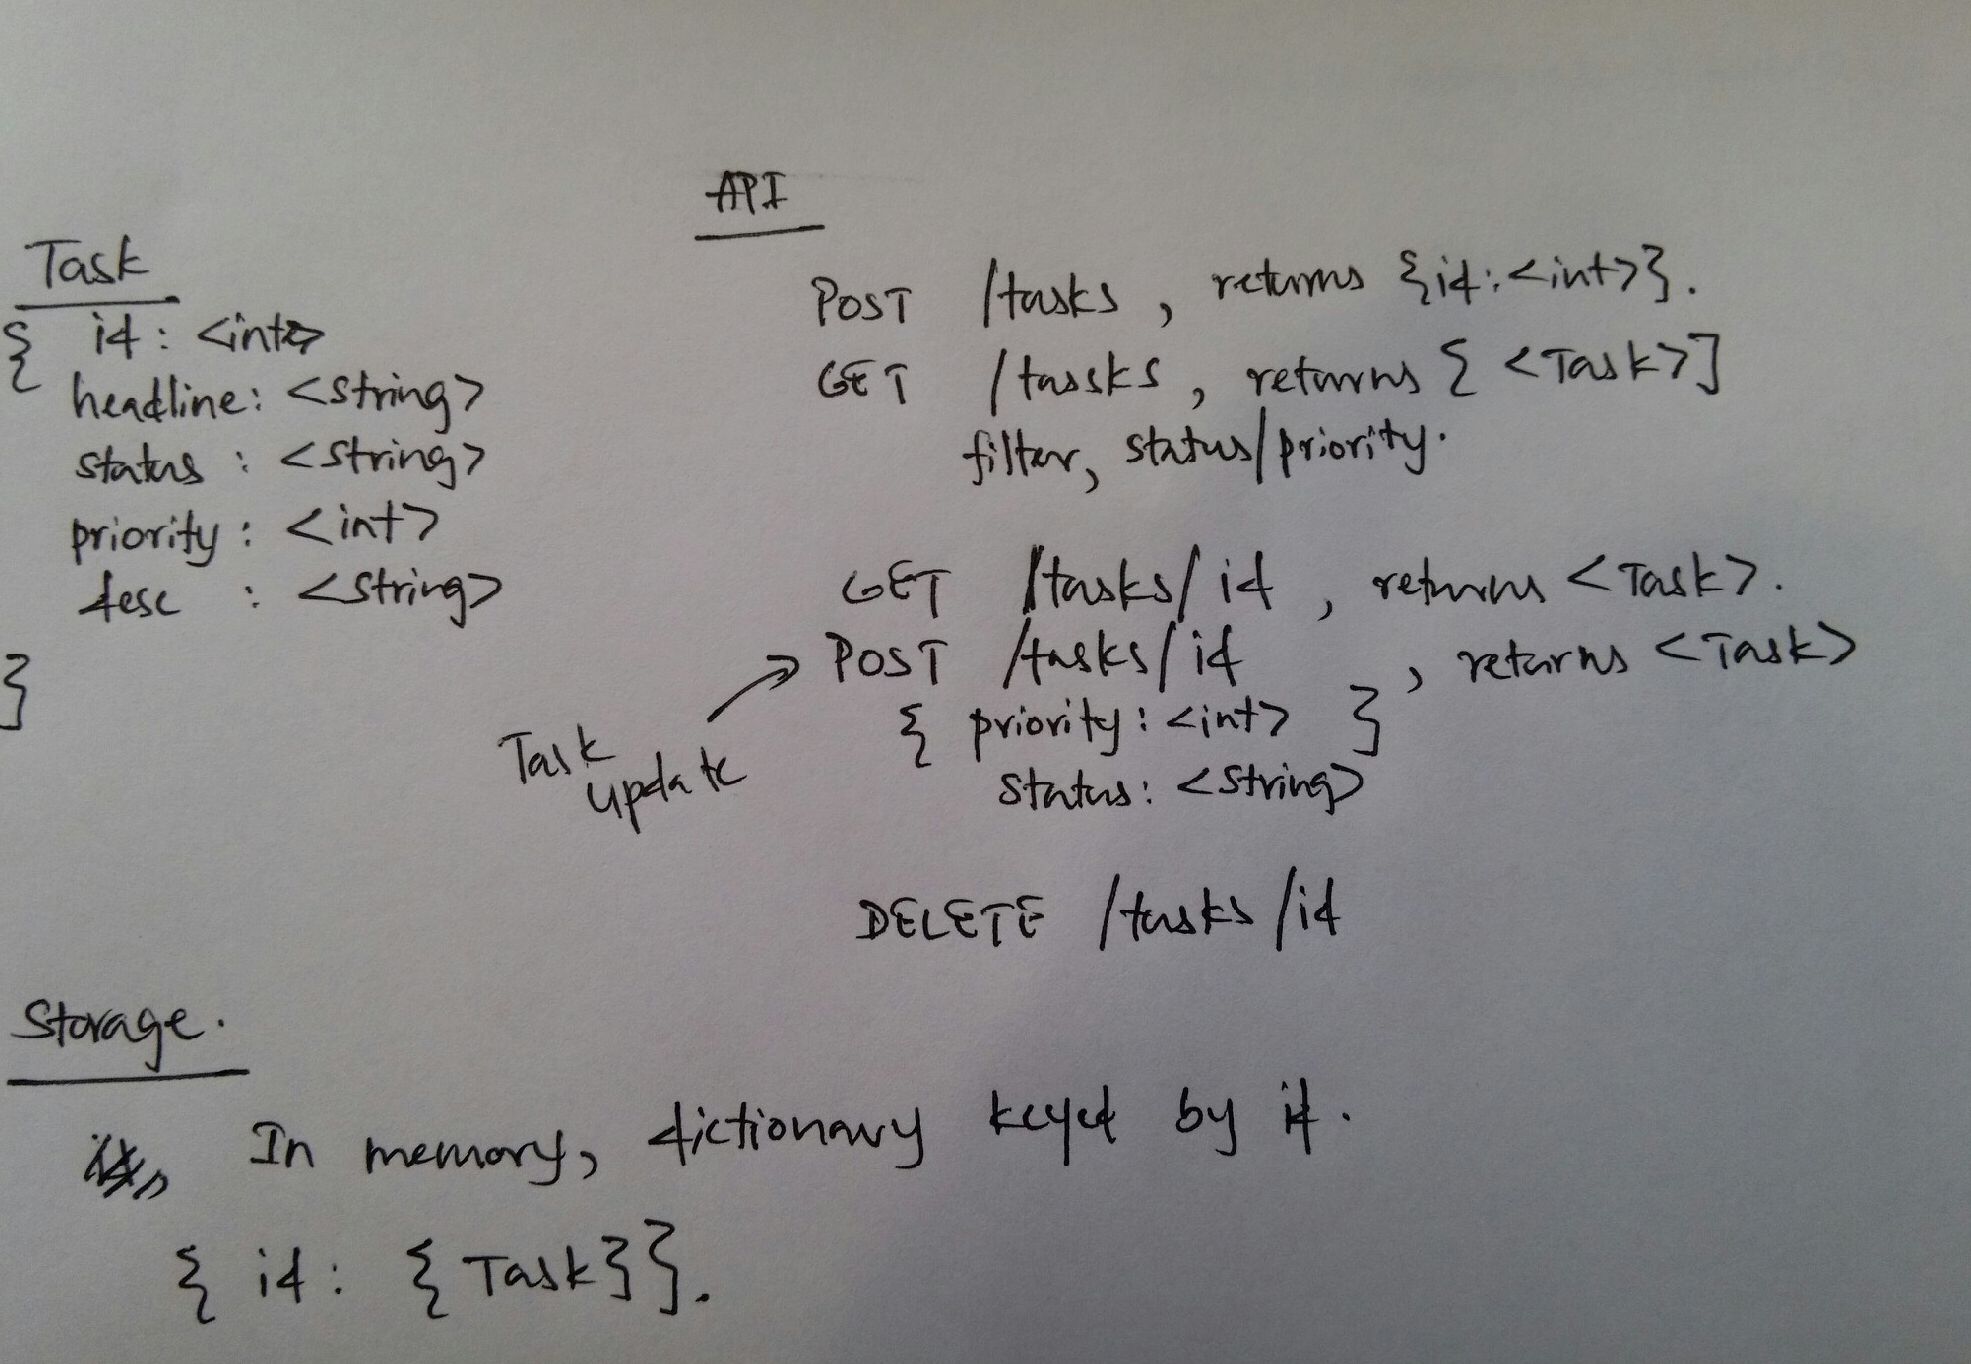 API
Task
{ id: <int>
headline: <string>
status : <string>
priority : <int>
desc : <string>
}
POST /tasks , returns {id:<int>}.
GET /tassks , returns { <Task>]
filter, status/priority.
GET /tasks/id , returns <Task>.
POST /tasks/id , returns <Task>
{ priority: <int> }
status: <string>
Task
update
DELETE /tasks/id
Storage.
In memory, dictionary keyed by id.
{ id: { Task}}.